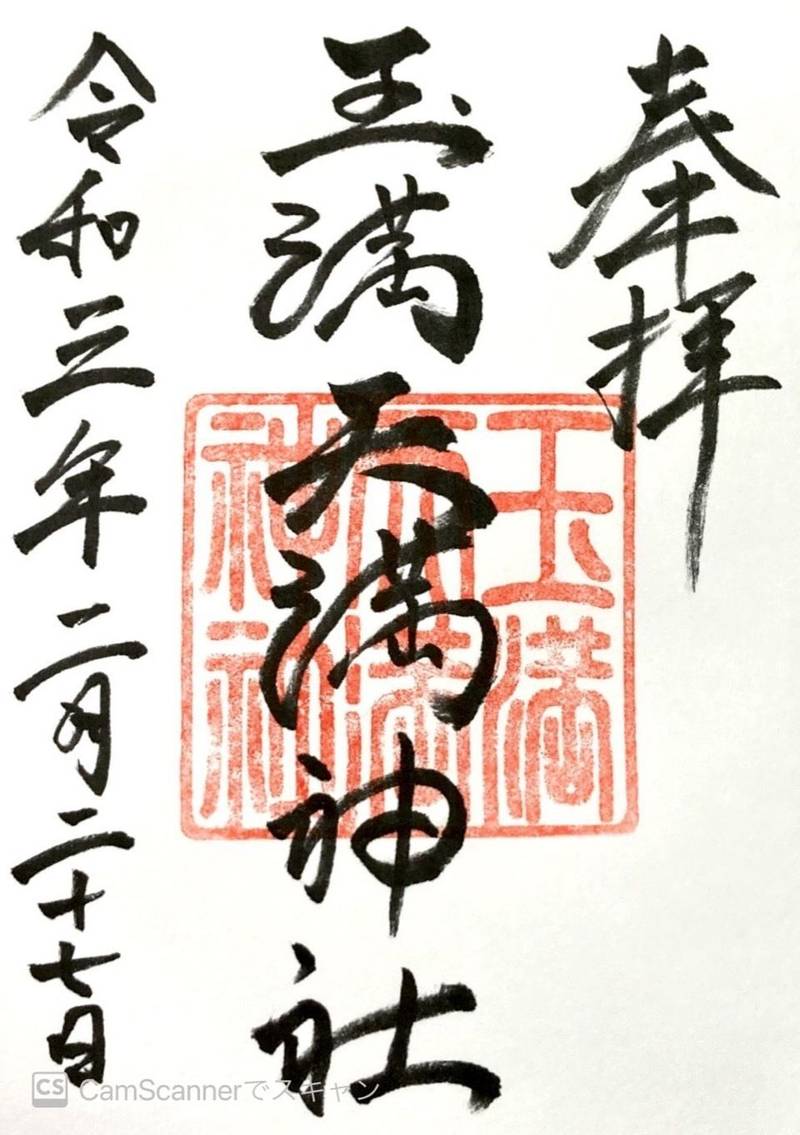 奉拝
玉満天満神社
令和三年二月二十七日
玉満
天満
神社
CS CamScannerでスキャン